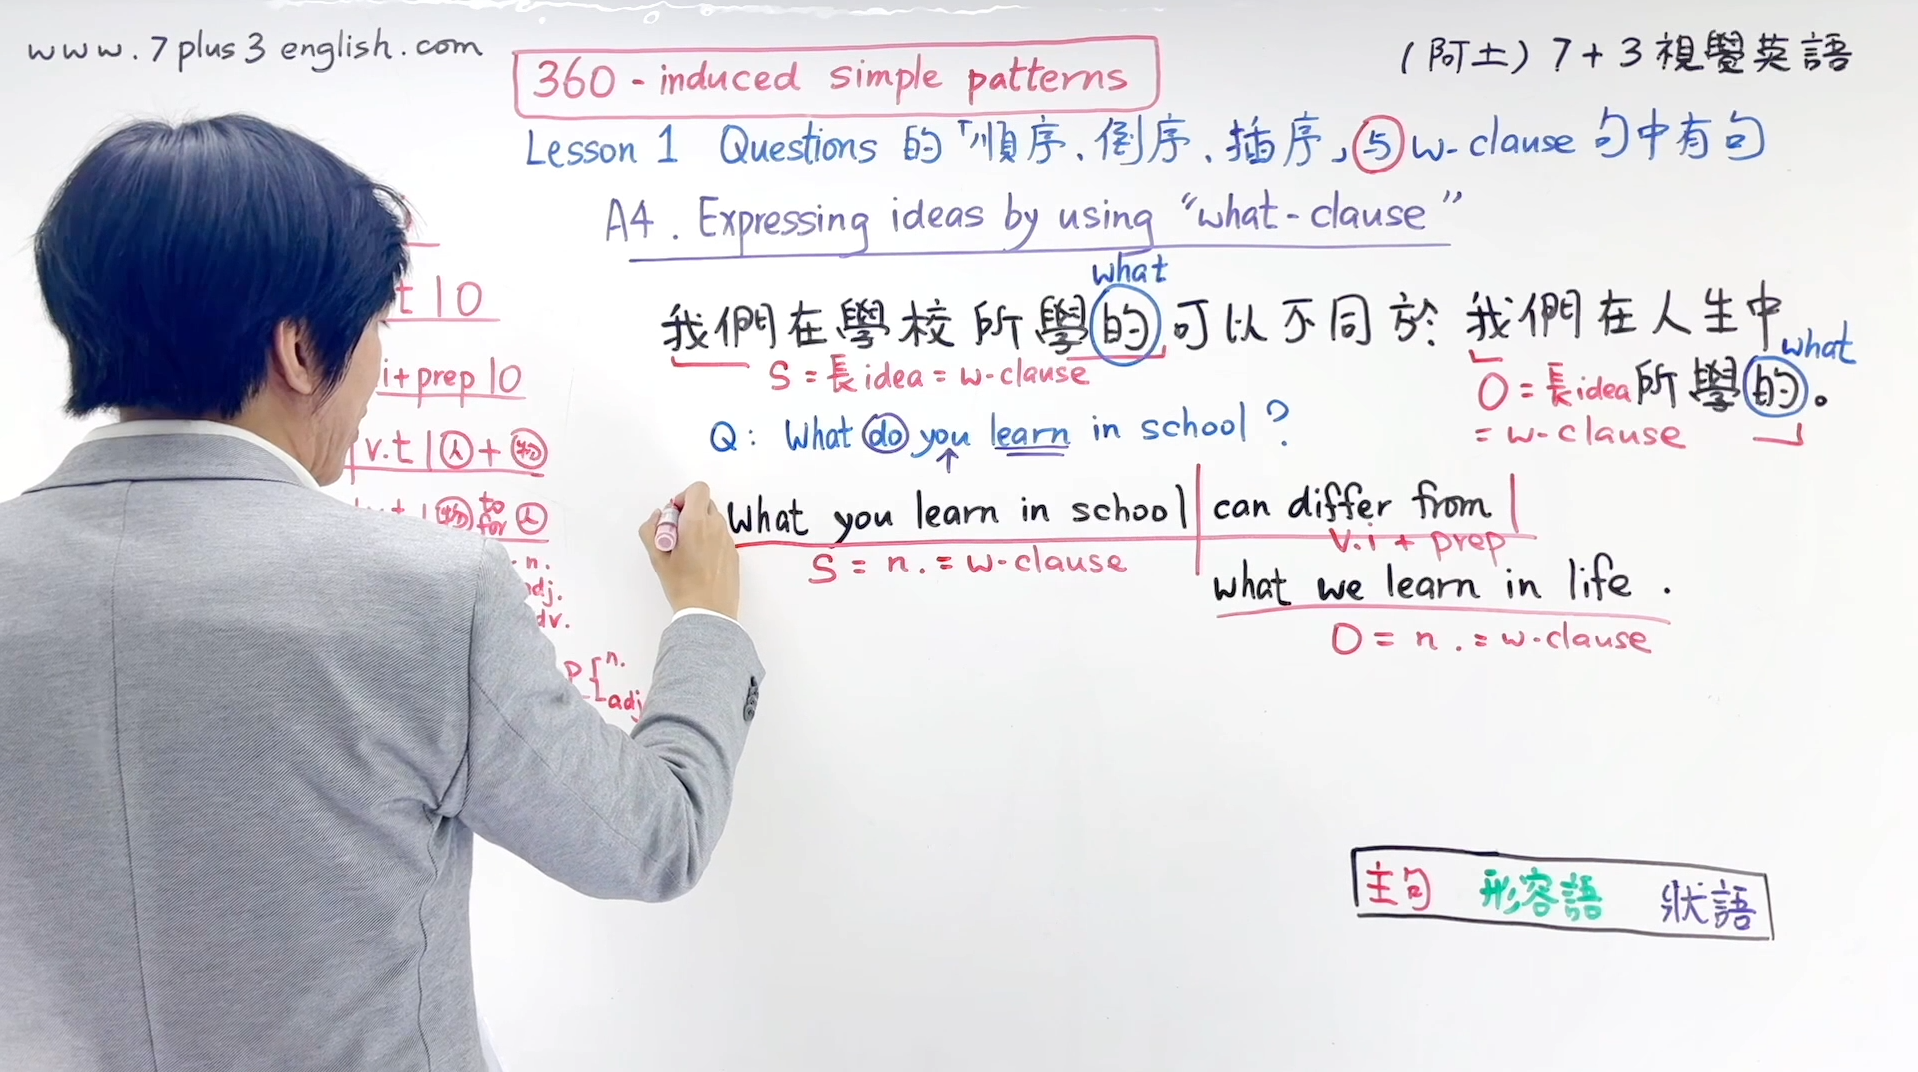 www.7plus3english.com
(阿土) 7+3視覺英語
360-induced simple patterns
Lesson 1 Questions 的「順序、倒序、插序」与 w-clause 句中有句
A4. Expressing ideas by using "what-clause"
what
我們在學校所學的可以不同於我們在人生中
what
所學的。
S = 長idea = w-clause
O = 長idea
= w-clause
Q: What do you learn in school?
what you learn in school | can differ from |
S = n. = w-clause
v.i + prep
what we learn in life.
O = n. = w-clause
t | O
i+prep | O
v.t | 人 + 物
物 to for 人
n.
adj.
dv.
P { n.
adj
主句 形容語 狀語